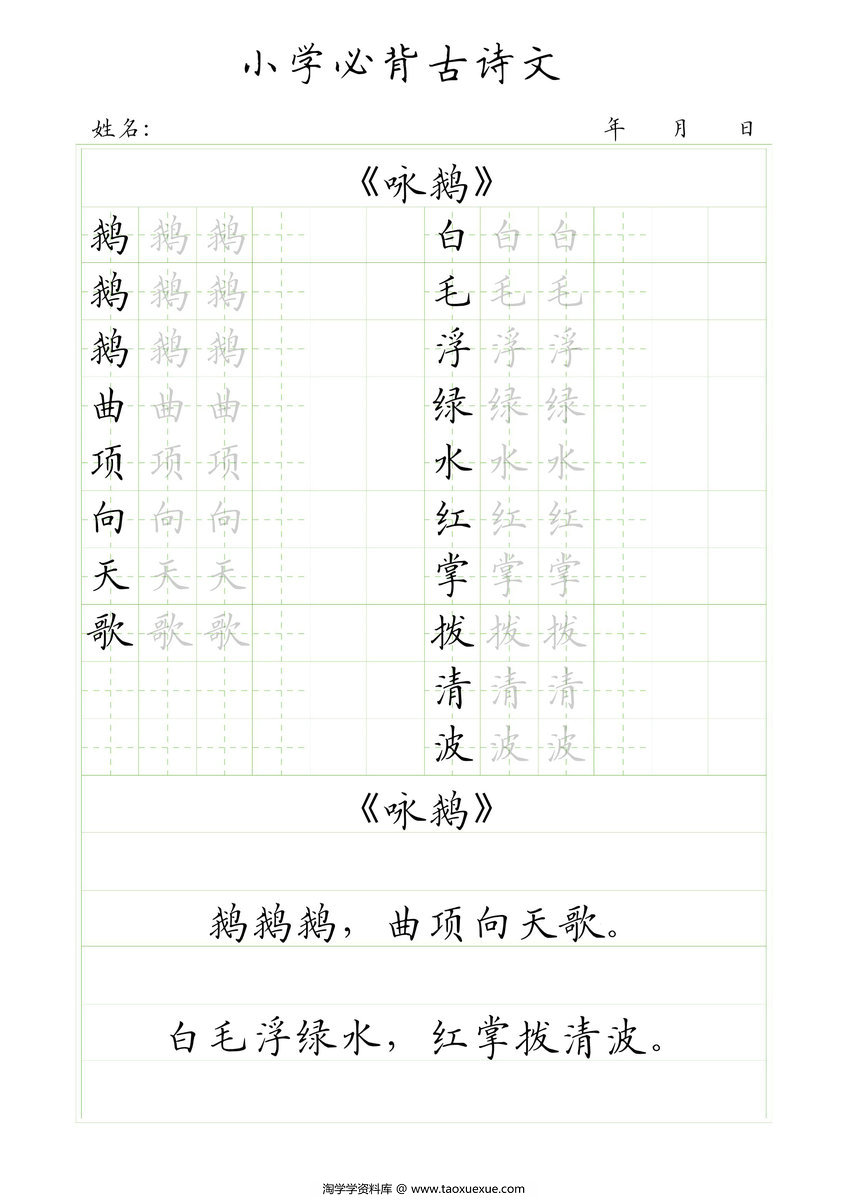 小学必背古诗文
姓名： 年 月 日
《咏鹅》
鹅 鹅 鹅 白 白 白
鹅 鹅 鹅 毛 毛 毛
鹅 鹅 鹅 浮 浮 浮
曲 曲 曲 绿 绿 绿
项 项 项 水 水 水
向 向 向 红 红 红
天 天 天 掌 掌 掌
歌 歌 歌 拨 拨 拨
清 清 清
波 波 波
《咏鹅》
鹅鹅鹅，曲项向天歌。
白毛浮绿水，红掌拨清波。
淘学学资料库 @ www.taoxuexue.com